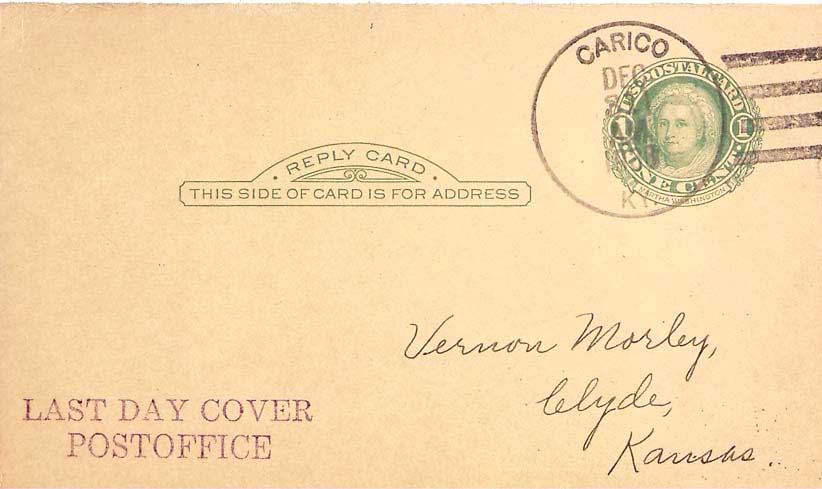 CARICO
DEC
KY
U.S. POSTAL CARD
1 1
ONE CENT
MARTHA WASHINGTON
· REPLY CARD ·
THIS SIDE OF CARD IS FOR ADDRESS
Vernon Morley,
Clyde,
Kansas.
LAST DAY COVER
POSTOFFICE